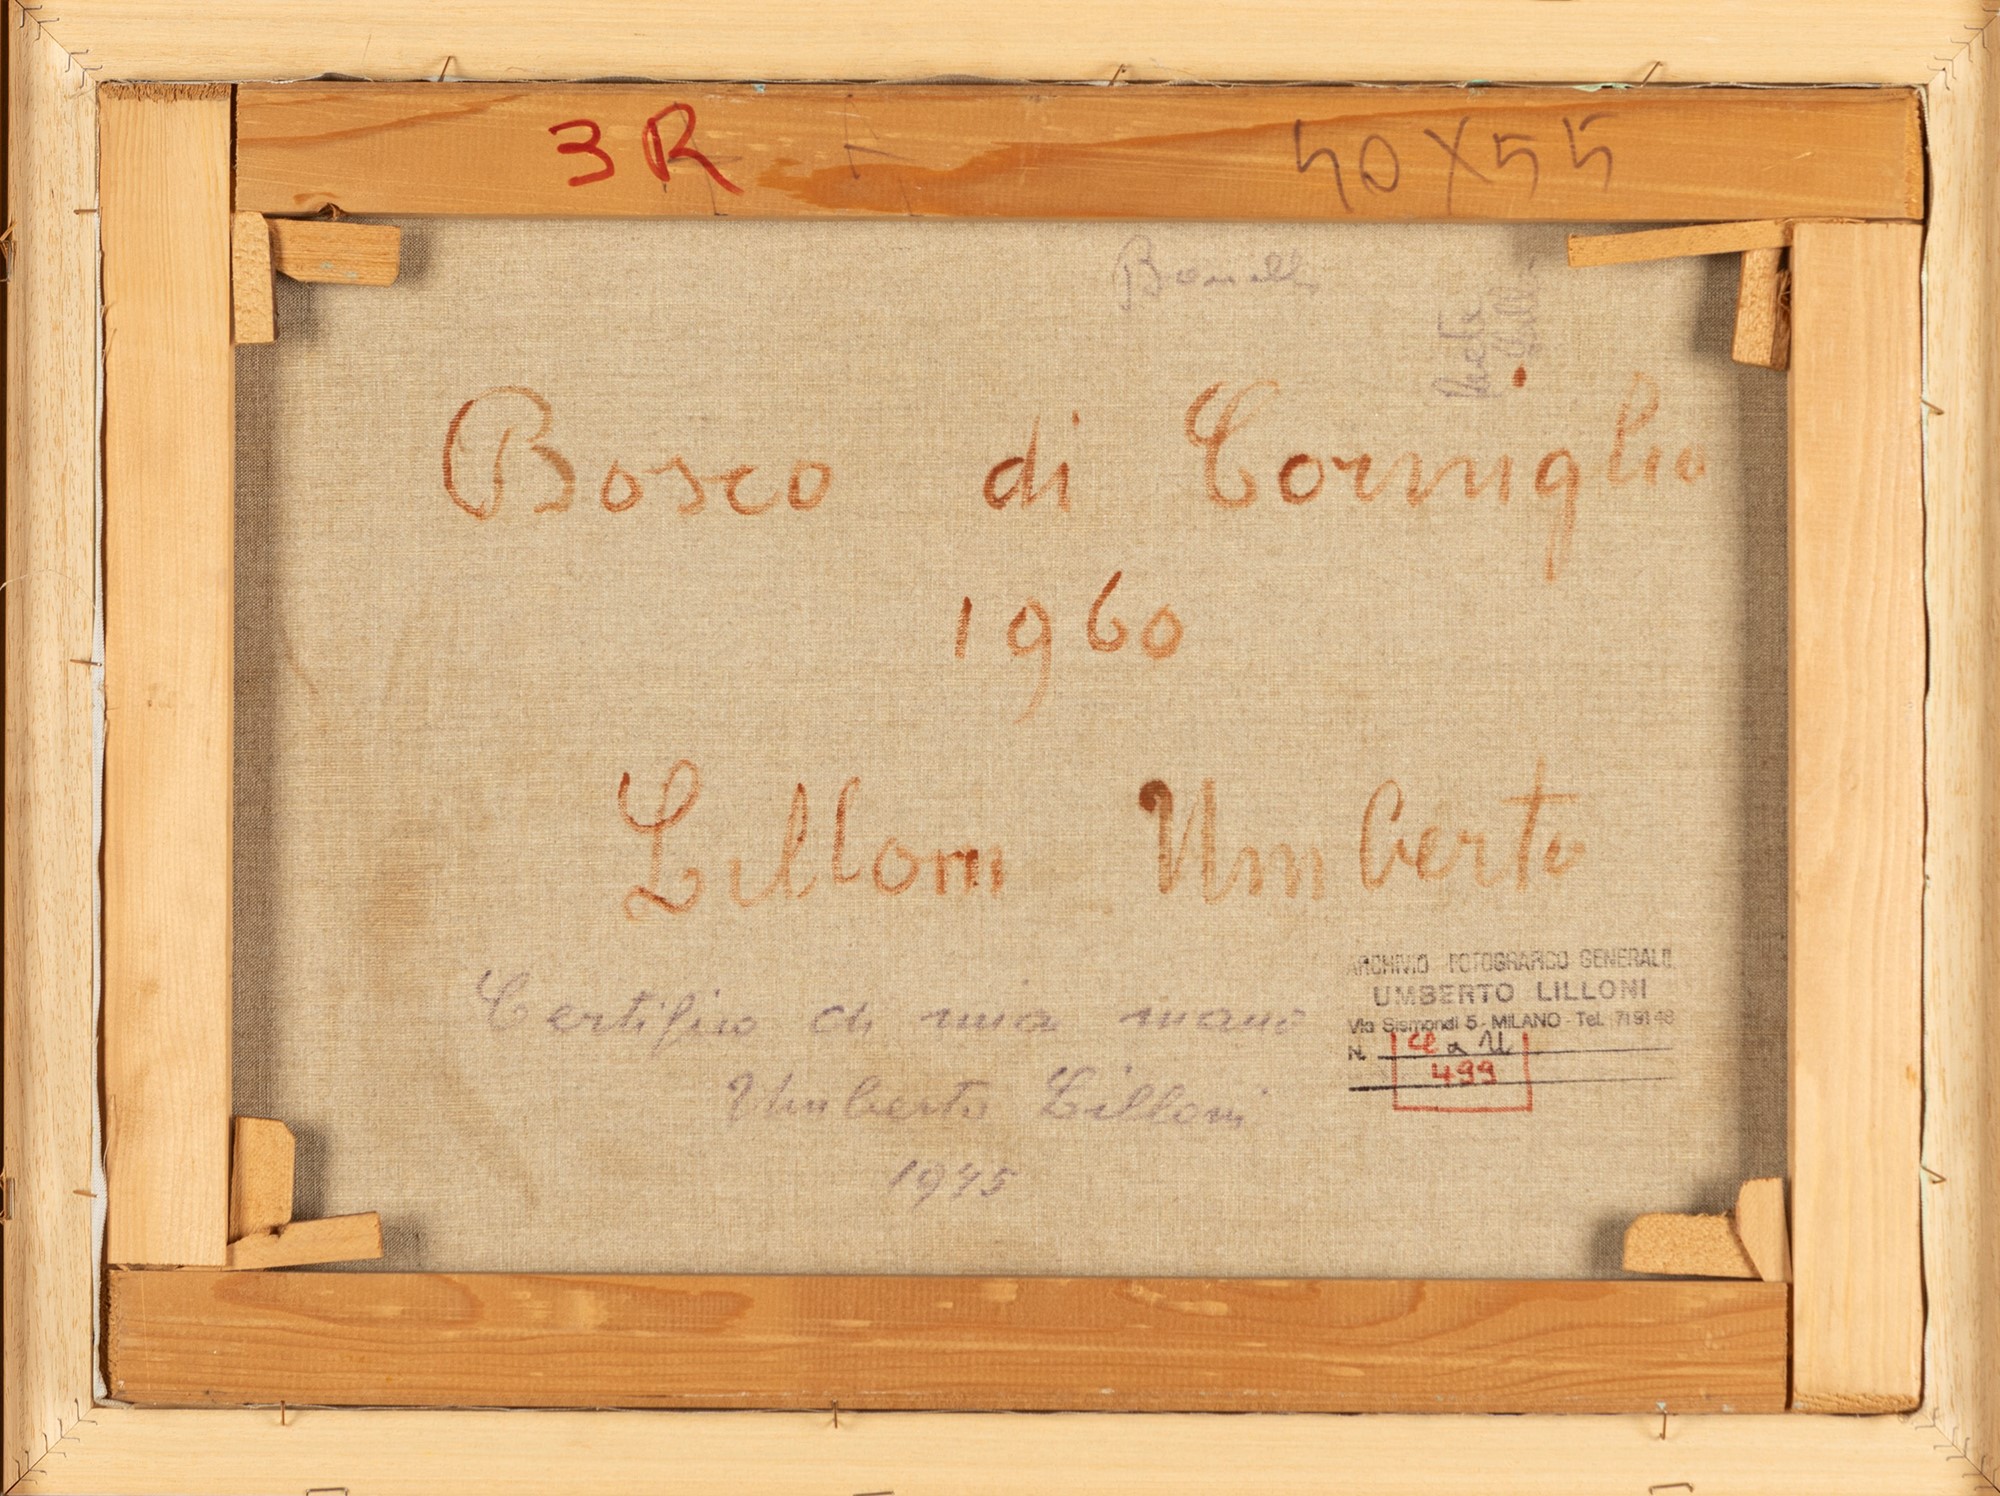 3R 40X55
Bosco di Corniglio
1960
Lilloni Umberto
Certifico di mia mano
Umberto Lilloni
1975
ARCHIVIO FOTOGRAFICO GENERALE
UMBERTO LILLONI
Via Sismondi 5 - MILANO - Tel. 719148
N.
499